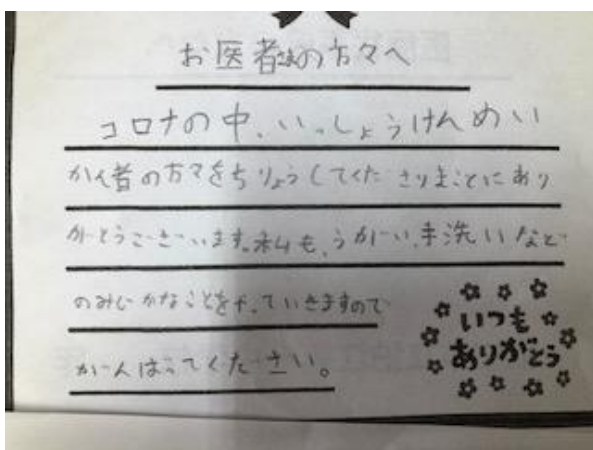 お医者さまの方々へ
コロナの中、いっしょうけんめい
かん者の方々をちりょうしてくださりまことにあり
がとうございます。私も、うがい、手洗いなど
のみぢかなことをやっていきますので
がんばってください。
いつも
ありがとう